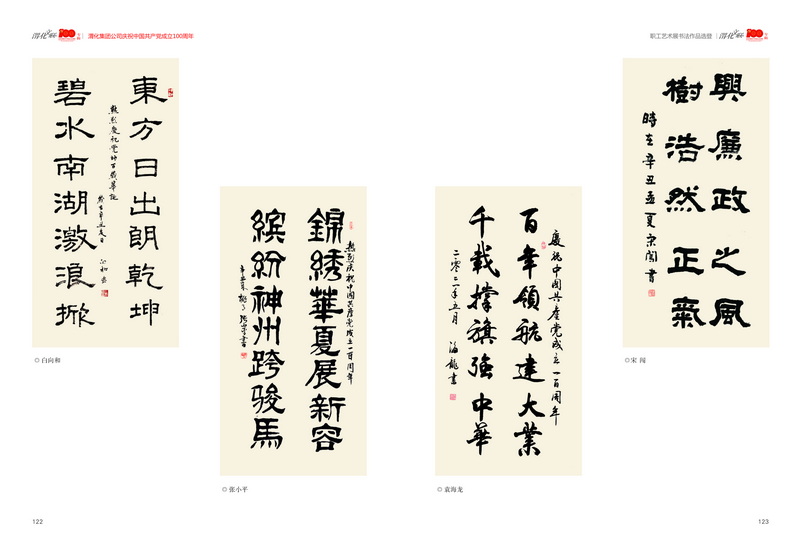 渭化集团公司庆祝中国共产党成立100周年
职工艺术展书法作品选登
東方日出朗乾坤
碧水南湖激浪掀
◎ 白向和
錦綉華夏展新容
缤纷神州跨骏馬
热烈庆祝中国共産党成立一百周年
◎ 张小平
慶祝中国共産党成立一百周年
百年領航建大業
千載撐旗強中華
二零二一年五月
海龍書
◎ 袁海龙
興廉政之風
樹浩然正氣
時在辛丑孟夏宋闯書
◎ 宋 闯
122
123